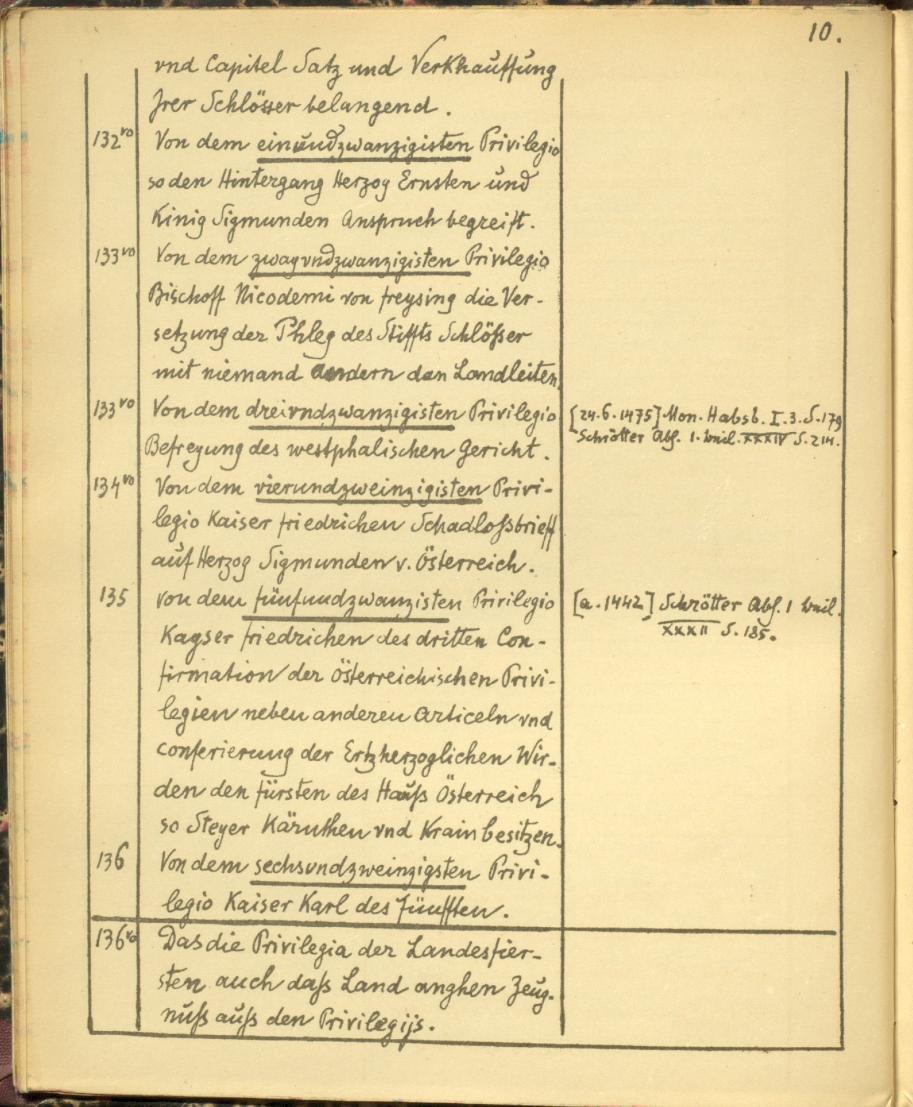 10.
vnd Capitel Satz und Verkhauffung
Jrer Schlösser belangend.
132vo Von dem einundzwanzigisten Privilegio
so den Hintergang Herzog Ernsten und
Kinig Sigmunden Anspruch begreift.
133vo Von dem zwayvndzwanzigisten Privilegio
Bischoff Nicodemi von freysing die Ver-
setzung der Phleg des Stiffts Schlösser
mit niemand andern dan Landleiten
133vo Von dem dreivndzwanzigisten Privilegio [24.6.1475] Mon. Habsb. I.3. S.179
Befreyung des westphalischen Gericht. Schrötter Abh. 1. beil. XXXIV S. 214.
134vo Von dem vierundzweinzigisten Privi-
legio Kaiser friedrichen Schadlossbrieff
auf Herzog Sigmunden v. Österreich.
135 von dem fünfundzwanzisten Privilegio [a. 1442] Schrötter Abh. 1 beil.
Kayser friedrichen des dritten Con- XXXII S. 185.
firmation der Österreichischen Privi-
legien neben anderen Articeln vnd
conferierung der Ertzherzoglichen Wir-
den den fürsten des Hauß Österreich
so Steyer Kärnthen vnd Krain besitzen.
136 Von dem sechsundzweinzigsten Privi-
legio Kaiser Karl des Fünfften.
136vo Das die Privilegia der Landesfier-
sten auch daß Land anghen Zeug-
nuß auß den Privilegijs.